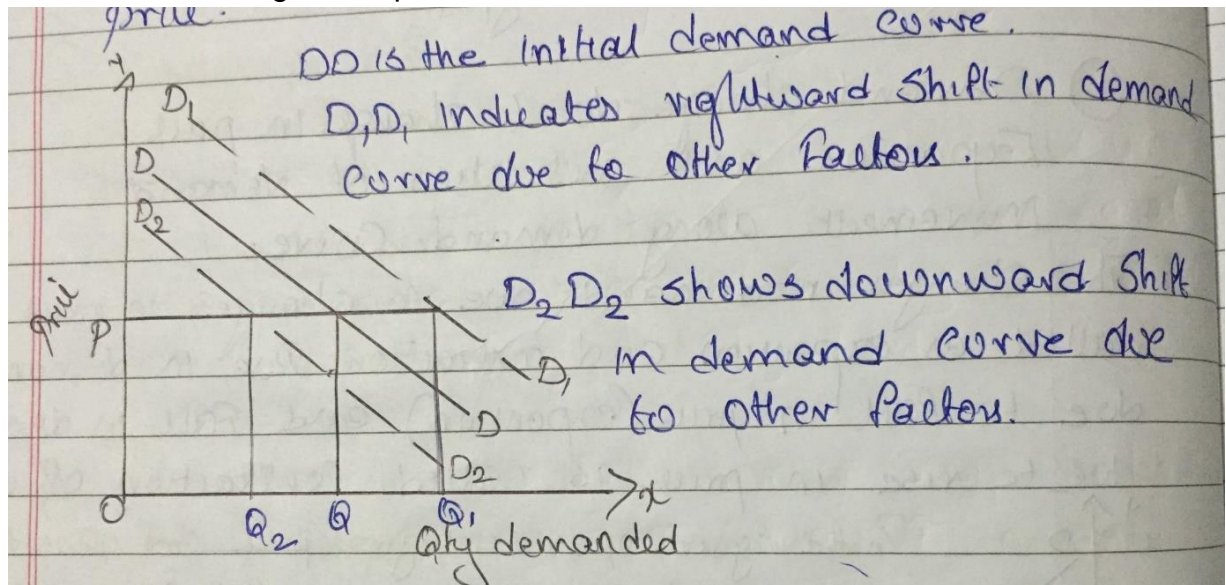 price.
DD is the initial demand curve.
D₁D₁ indicates rightward shift in demand
curve due to other factors.
D₂D₂ shows downward shift
in demand curve due
to other factors.
y
D₁
D
D₂
Price
P
D₁
D
D₂
O
Q₂ Q Q₁
x
Qty demanded